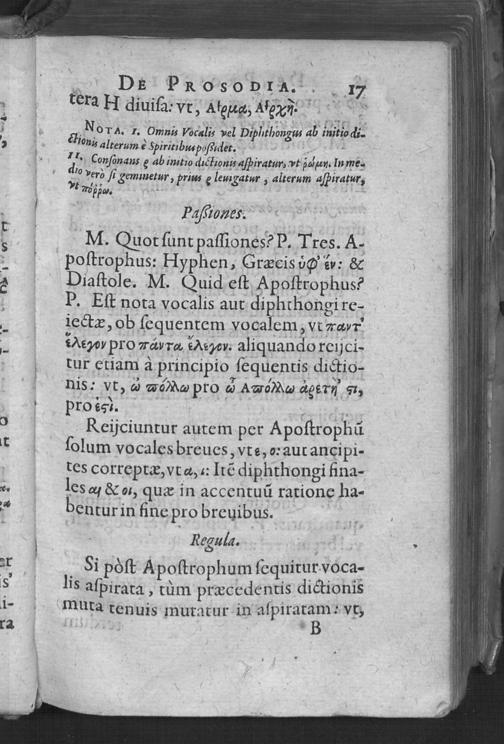 DE PROSODIA. 17
tera H diviſa: vt, Αͱρμα, Αͱρχὴ.
NOTA. I. Omnis Vocalis vel Diphthongus ab initio di-
ctionis alterum è Spiritibus poßidet.
II. Conſonans ϱ ab initio dictionis aſpiratur, vt ῥώμη. In me-
dio verò ſi geminetur, prius ϱ levigatur, alterum aſpiratur,
vt πόῤῥω.
Paßiones.
M. Quot ſunt paſſiones? P. Tres. A-
poſtrophus: Hyphen, Græcis ὑφ' ἕν: &
Diaſtole. M. Quid eſt Apoſtrophus?
P. Eſt nota vocalis aut diphthongi re-
iectæ, ob ſequentem vocalem, vt παντ'
ἔλεγον pro πάντα ἔλεγον. aliquando reijci-
tur etiam à principio ſequentis dictio-
nis: vt, ὠ πόλλω pro ὦ Απόλλω ἀρετή ϛι,
pro ἐϛὶ.
Reijciuntur autem per Apoſtrophū
ſolum vocales breves, vt ε, ο: aut ancipi-
tes correptæ, vt α, ι: Itē diphthongi fina-
les αι & οι, quæ in accentuū ratione ha-
bentur in fine pro brevibus.
Regula.
Si pòſt Apoſtrophum ſequitur voca-
lis aſpirata, tùm præcedentis dictionis
muta tenuis mutatur in aſpiratam: vt,
B